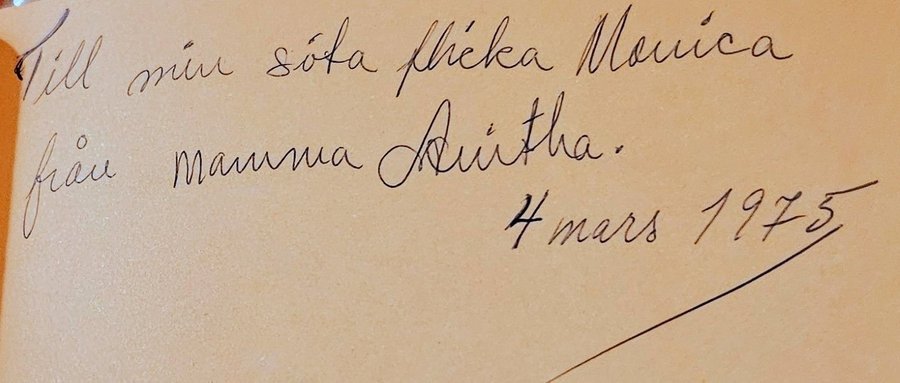 Till min söta flicka Monica
från mamma Anitha.
4 mars 1975